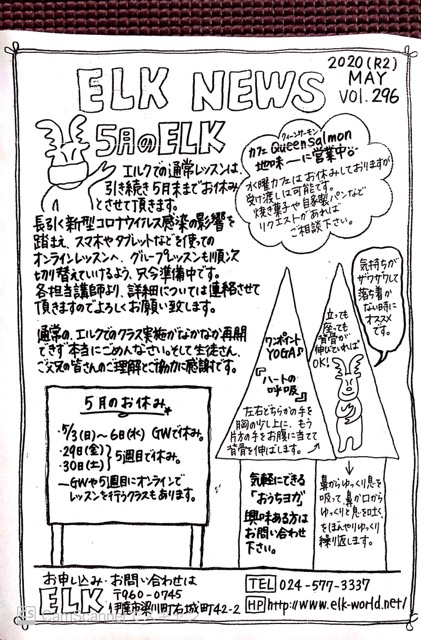 2020(R2)
MAY
VOl.296
ELK NEWS
5月のELK
エルクでの通常レッスンは、
引き続き5月末までお休み
とさせて頂きます。
長引く新型コロナウイルス感染の影響を
踏まえ、スマホやタブレットなどを使っての
オンラインレッスンへ、グループレッスンも順次
切り替えていけるよう、只今準備中です。
各担当講師より、詳細については連絡させて
頂きますのでよろしくお願い致します。
通常の、エルクでのクラス実施がなかなか再開
できず本当にごめんなさい。そして生徒さん、
ご父兄の皆さんのご理解とご協力に感謝です。
クィーンサーモン
カフェ Queen Salmon
地味ーに営業中
水曜カフェはお休みしておりますが
受け渡しは可能です。
焼き菓子や自家製パンなど
リクエストがあれば
ご相談下さい。
気持ちが
ザワザワして
落ち着か
ない時に
オススメ
です。
5月のお休み
・5/3(日)〜6日(水) GWで休み。
・29日(金)
・30日(土)
5週目で休み。
―GWや5週目にオンラインで
レッスンを行うクラスもあります。
ワンポイント
YOGA♪
『ハートの
呼吸』
左右どちらかの手を
胸の少し上に、もう
片方の手をお腹に当てて
背骨を伸ばします。
立っても
座っても
背骨が
伸びていれば
OK!
鼻からゆっくり息を
吸って、鼻か口から
ゆっくりと息を吐く、
をほんやりゆっくり
繰り返します。
気軽にできる
「おうちヨガ」
興味ある方は
お問い合わせ
下さい。
お申し込み・お問い合わせは
ELK
〒960-0745
伊達市梁川町右城町42-2
TEL 024-577-3337
HP http://www.elk-world.net/
CS CamScanner